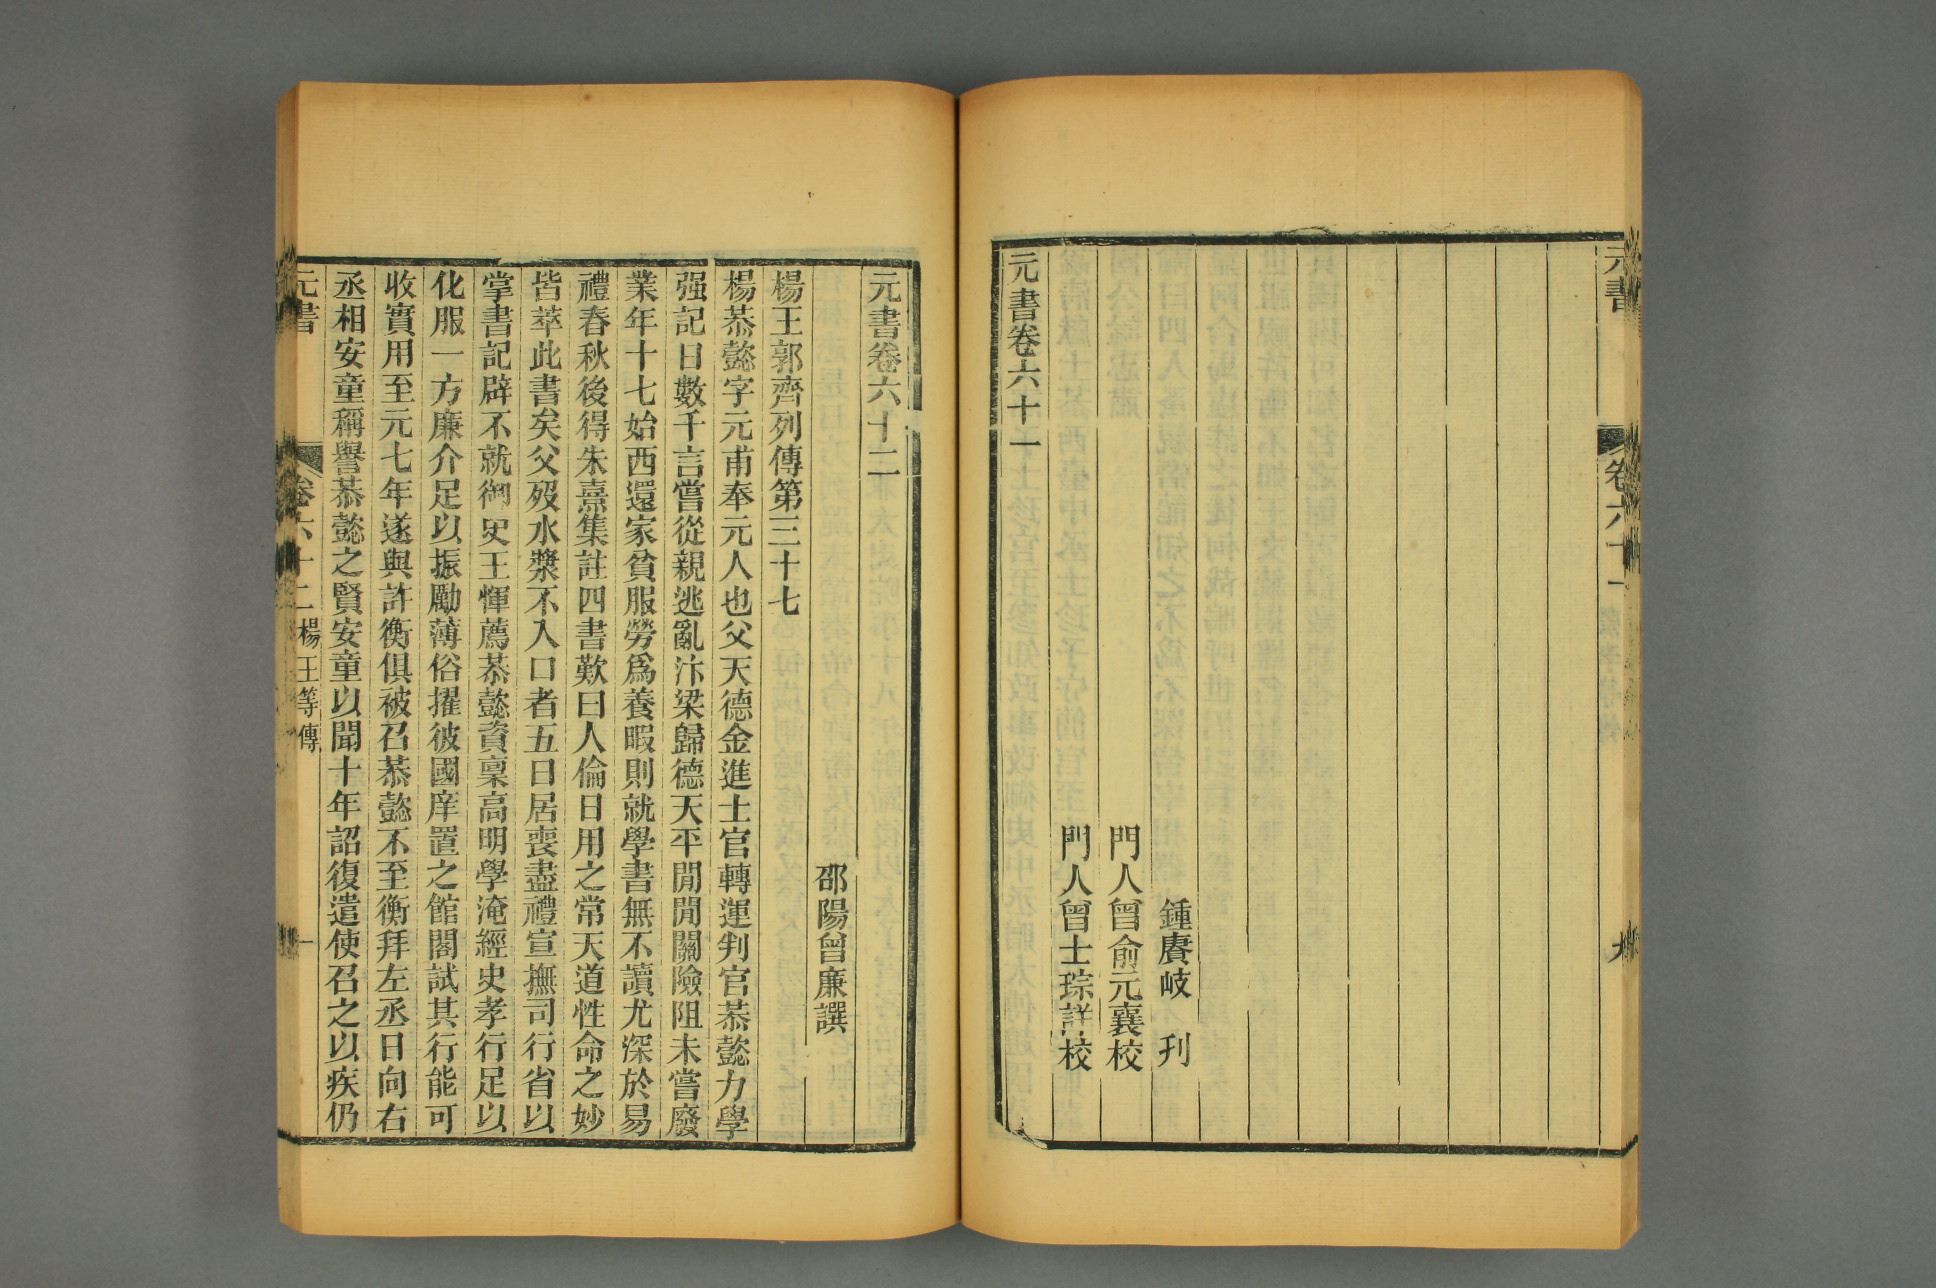 元書
卷六十一
九
鍾賡岐 刊
門人曾俞元襄校
門人曾士琮詳校
元書卷六十一
元書卷六十二
邵陽曾廉譔
楊王郭齊列傳第三十七
楊恭懿字元甫奉元人也父天德金進士官轉運判官恭懿力學
强記日數千言嘗從親逃亂汴梁歸德天平閒閒關險阻未嘗廢
業年十七始西還家貧服勞爲養暇則就學書無不讀尤深於易
禮春秋後得朱熹集註四書歎曰人倫日用之常天道性命之妙
皆萃此書矣父歿水漿不入口者五日居喪盡禮宣撫司行省以
掌書記辟不就御史王惲薦恭懿資稟高明學淹經史孝行足以
化服一方廉介足以振勵薄俗擢彼國庠置之館閣試其行能可
收實用至元七年遂與許衡俱被召恭懿不至衡拜左丞日向右
丞相安童稱譽恭懿之賢安童以聞十年詔復遣使召之以疾仍
元書
卷六十二楊王等傳
一